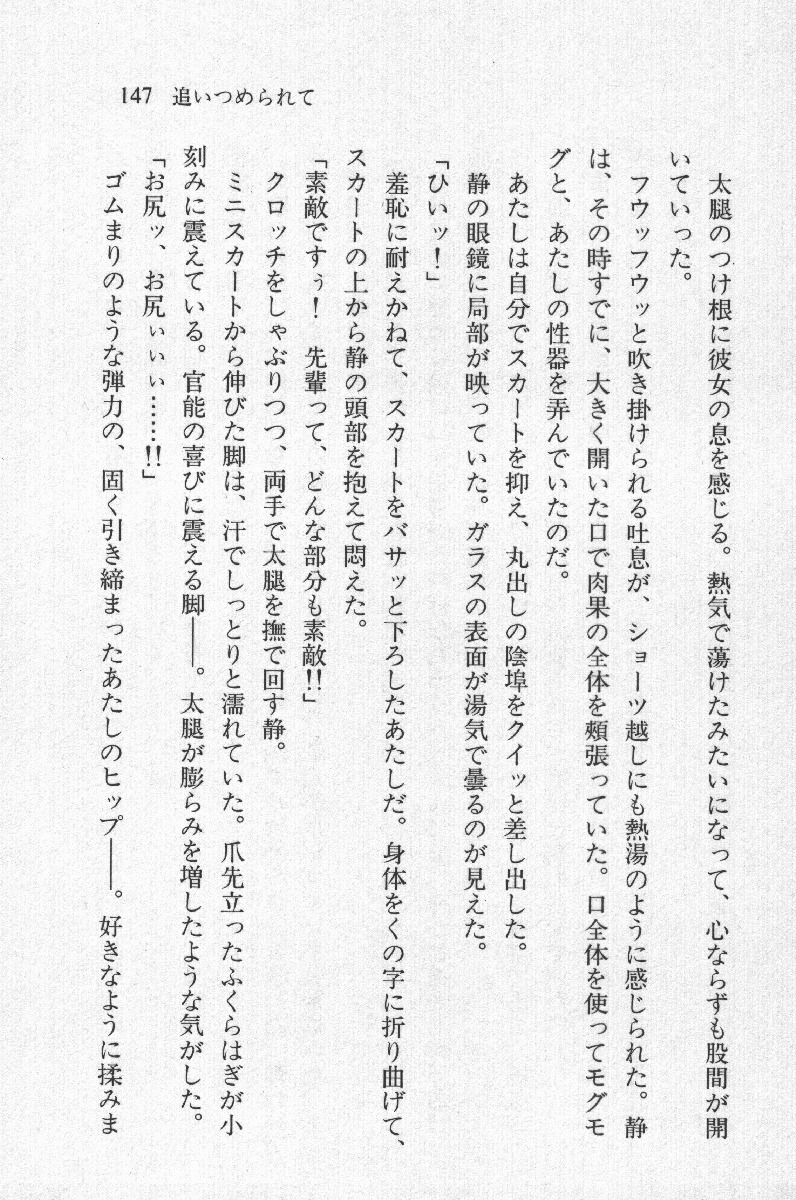 147 追いつめられて
　太腿のつけ根に彼女の息を感じる。熱気で蕩けたみたいになって、心ならずも股間が開
いていった。
　フウッフウッと吹き掛けられる吐息が、ショーツ越しにも熱湯のように感じられた。静
は、その時すでに、大きく開いた口で肉果の全体を頰張っていた。口全体を使ってモグモ
グと、あたしの性器を弄んでいたのだ。
　あたしは自分でスカートを抑え、丸出しの陰埠をクイッと差し出した。
　静の眼鏡に局部が映っていた。ガラスの表面が湯気で曇るのが見えた。
「ひいッ！」
　羞恥に耐えかねて、スカートをバサッと下ろしたあたしだ。身体をくの字に折り曲げて、
スカートの上から静の頭部を抱えて悶えた。
「素敵ですぅ！　先輩って、どんな部分も素敵!!」
　クロッチをしゃぶりつつ、両手で太腿を撫で回す静。
　ミニスカートから伸びた脚は、汗でしっとりと濡れていた。爪先立ったふくらはぎが小
刻みに震えている。官能の喜びに震える脚――。太腿が膨らみを増したような気がした。
「お尻ッ、お尻ぃぃぃ……!!」
　ゴムまりのような弾力の、固く引き締まったあたしのヒップ――。好きなように揉みま